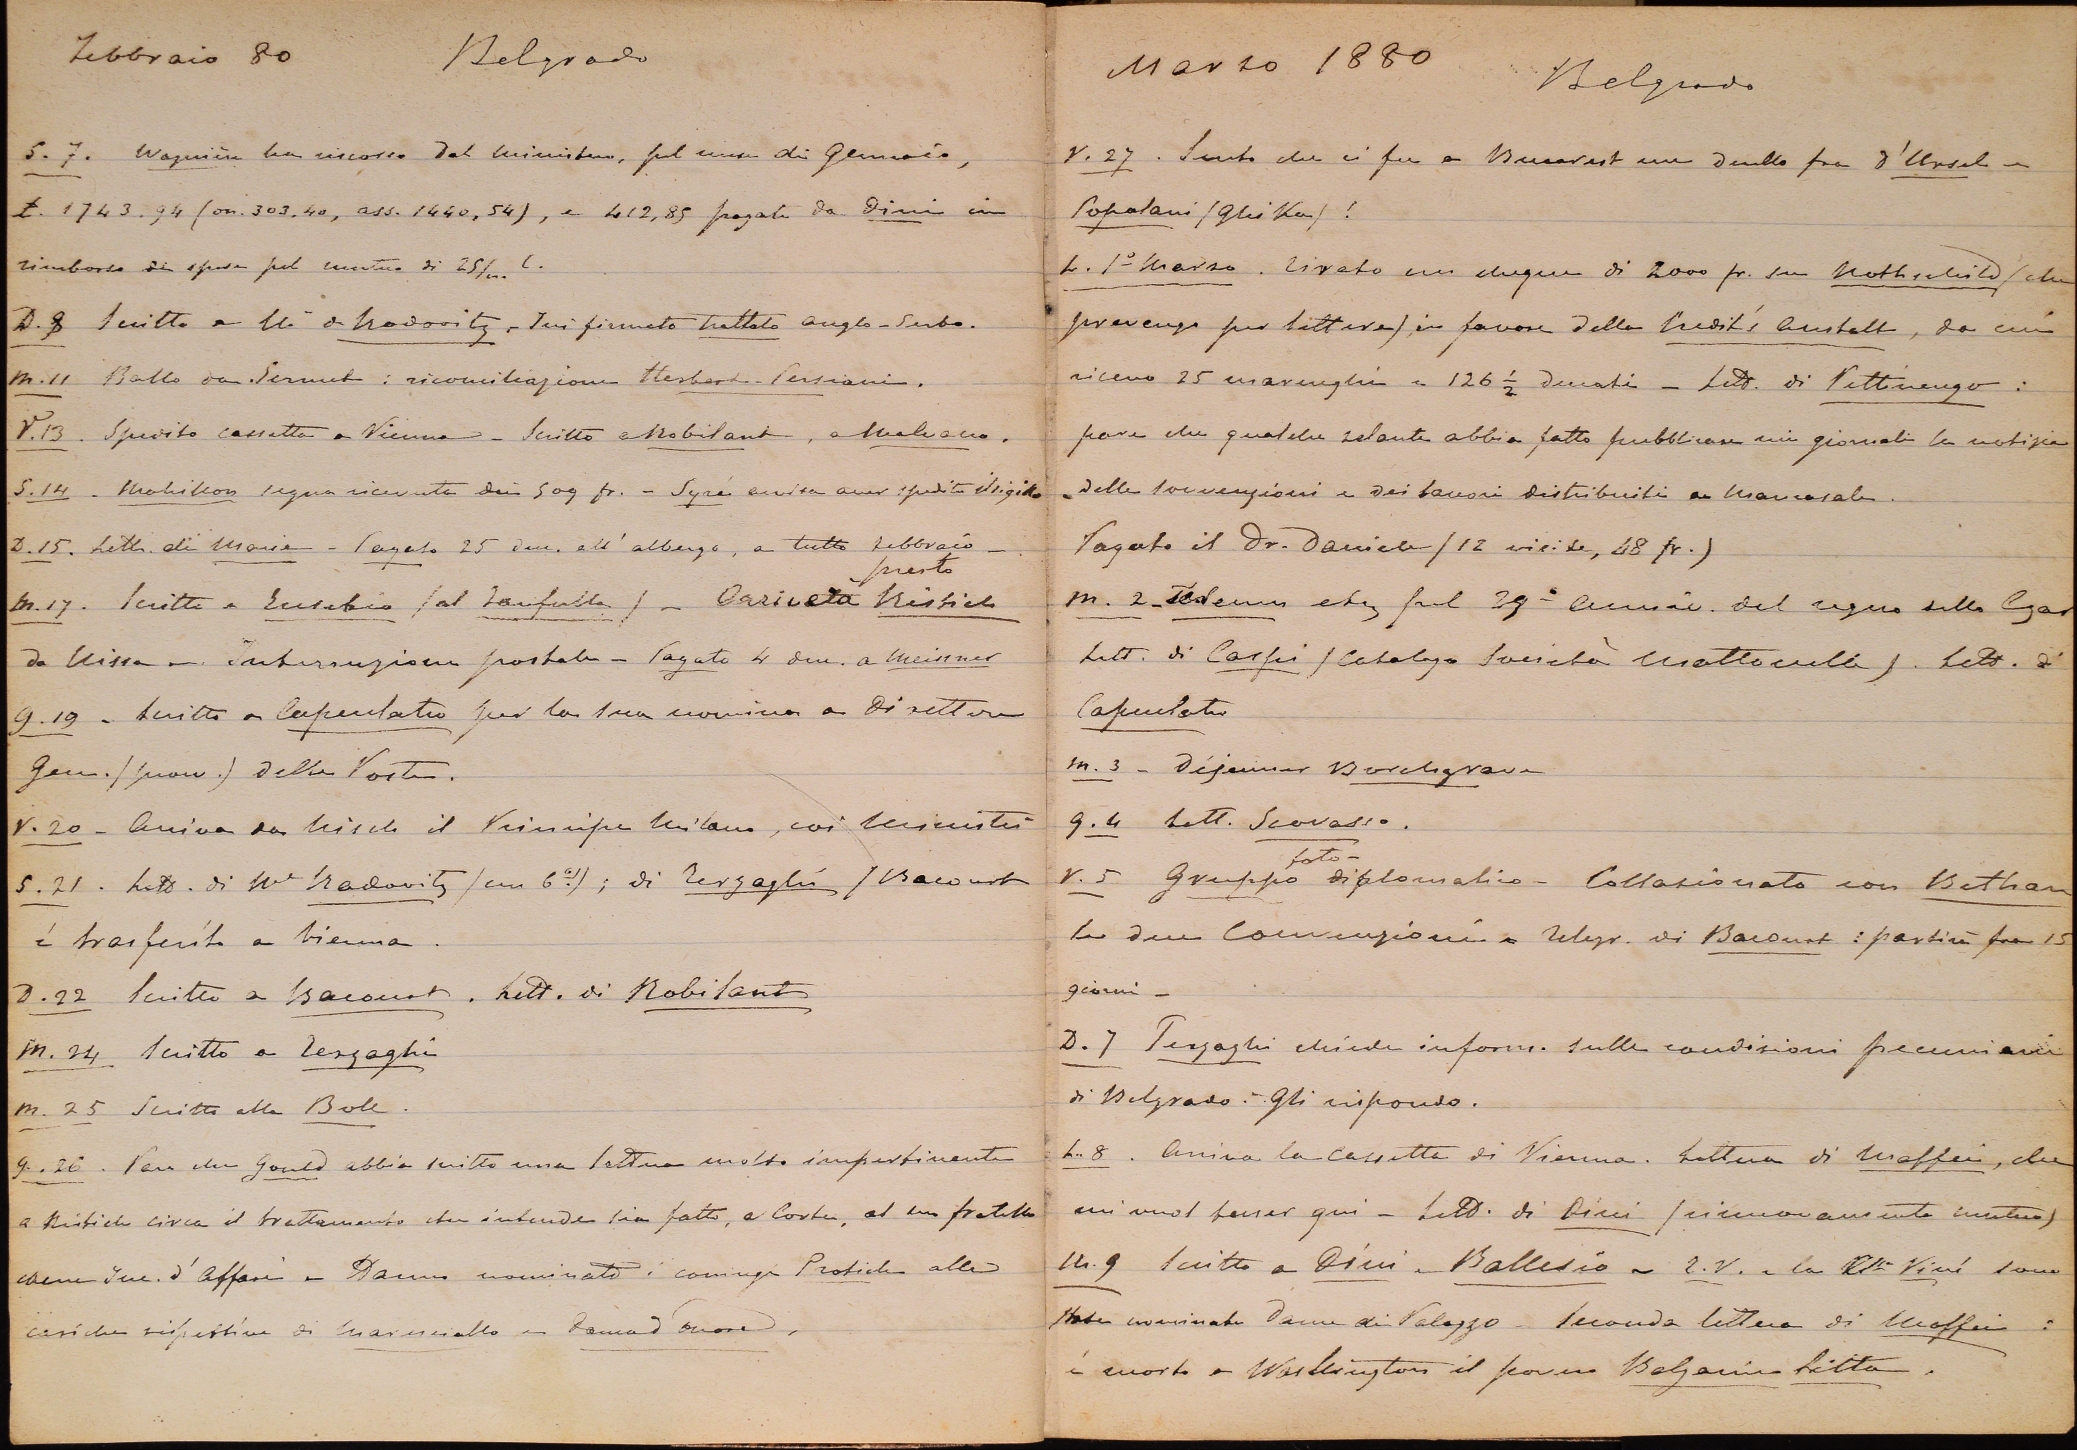 Febbraio 80 Belgrado
S. 7. Wagnière ha riscosso dal ministero, pel mese di Gennaio,
£. 1743.94 (on. 303.40, ass. 1440,54), e 412,85 pagate da Dini in
rimborso di spese pel mutuo di 25/m l.
D. 8 Scritto a Me de Radovitz - Ieri firmato trattato anglo-serbo.
M. 11 Ballo da Sermet : riconciliazione Herbert-Persiani.
V. 13. Spedito cassetta a Vienna - Scritto a Robilant, a Malvano.
S. 14 - segna ricevuta dei 509 fr. - Syré avvisa aver spedito il sigillo
D. 15. Lett. di Maria - Pagato 25 duc. all'albergo, a tutto febbraio -
M. 17. Scritto a Eusebio (al Fanfulla) - presto Ristich
da Nissa - Interruzione postale - Pagato 4 duc. a Meissner
G. 19 - Scritto a Capeulatro per la sua nomina a Direttore
Gen. (provv.) delle Poste.
V. 20 - Arriva da Nisch il Principe Milano, coi Ministri
S. 21. Lett. di Me Radovitz (un 6°!) ; di Terzaghi / Bacourt
è trasferito a Vienna.
D. 22 Scritto a Bacourt. Lett. di Robilant
M. 24 Scritto a Terzaghi
M. 25 Scritto alla Boll.
G. 26. Pare che Gould abbia scritto una lettera molto impertinente
a Ristich circa il trattamento che intende sia fatto, a Corte, ad un fratello
Inc. d'Affari - nominati i coniugi Protich alle
cariche rispettive di Maresciallo e Dama d'onore.
Marzo 1880 Belgrado
V. 27. Sento che ci fu a Bucarest un duello fra d'Ursel e
(Ghika) !
L. 1° Marzo. Tirato un chèque di 2000 fr. su Rothschild (che
prevengo per lettera) in favore della Credit's Anstalt, da cui
ricevo 25 marenghi e 126 ½ ducati - Lett. di Pettinengo :
pare che qualche zelante abbia fatto pubblicare nei giornali la notizia
delle sovvenzioni e dei lavori distribuiti a Marcasale.
Pagato il Dr. Daniele (12 visite, 48 fr.)
M. 2 - Te Deum pel 29° anniv. del regno dello Czar
Lett. di Caspi (Catalogo Società Mattonelle). Lett. di
Capeulatro
M. 3 - Déjeuner Borchgrave
G. 4 Lett. Scovasso.
V. 5 Gruppo foto-diplomatico - Collazionato con Béthan
le due Convenzioni - Telegr. di Bacourt : partirà fra 15
giorni -
D. 7 Terzaghi chiede inform. sulle condizioni pecuniarie
di Belgrado. - Gli rispondo.
L. 8. Arriva la cassetta di Vienna. Lettera di Maffei, che
mi vuol tener qui - Lett. di Dini (rinnovamento mutuo)
M. 9 Scritto a Dini e Ballesio - e la Vinì sono
state nominate Dame di Palazzo - Seconda lettera di Maffei :
è morto a Washington il povero Balzarino Litta.